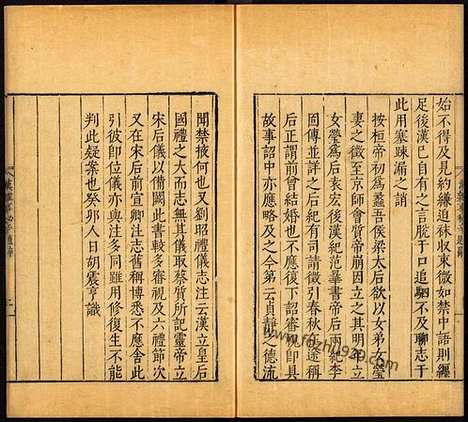 始不得及見約縑迫袜收束微如禁中語則纏
足後漢已自有之言脫于口追駟不及聊志于
此用塞疎漏之誚
按桓帝初為蠡吾侯梁太后欲以女弟女瑩
妻之徵至京師會質帝崩因以立其明立
女瑩為后袁宏後紀范曄書帝后兩紀李
固傳並詳之后紀有司請徵引春秋
后正謂前曾結婚也不應復下詔審視即具
故事詔中亦應略及之今第云貞靜之德流
聞禁掖何也又劉昭禮儀志注云漢立皇后
國禮之大而志無其儀取蔡質所記靈帝立
宋后儀以備闕此書較多審視及六禮節次
又在宋后前宣卿注志舊稱博悉不應舍此
引彼即位儀亦與注多同雖用修復生不能
判此疑案也癸卯人日胡震亨識
漢雜事祕辛